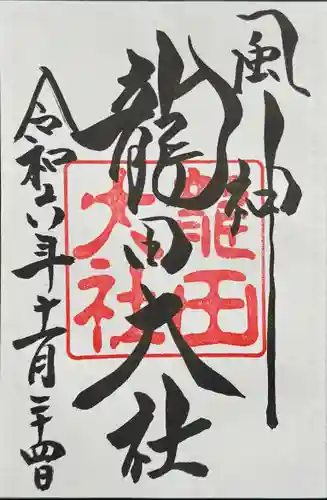 風神
龍田大社
龍田
大社
令和六年十一月二十四日